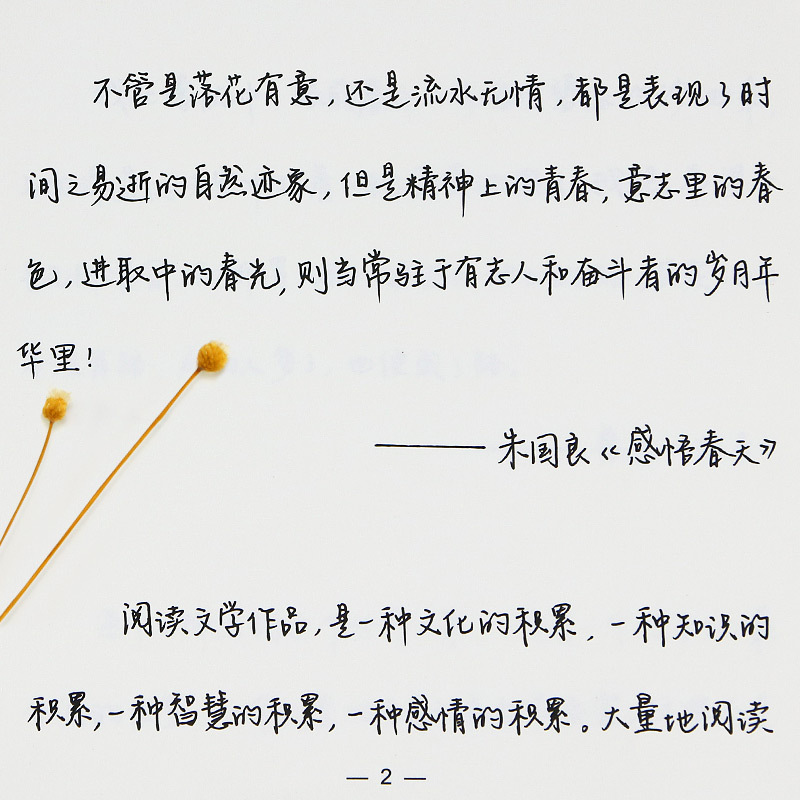 不管是落花有意，还是流水无情，都是表现了时
间之易逝的自然迹象，但是精神上的青春，意志里的春
色，进取中的春光，则当常驻于有志人和奋斗者的岁月年
华里！
——朱国良《感悟春天》
阅读文学作品，是一种文化的积累，一种知识的
积累，一种智慧的积累，一种感情的积累。大量地阅读
— 2 —